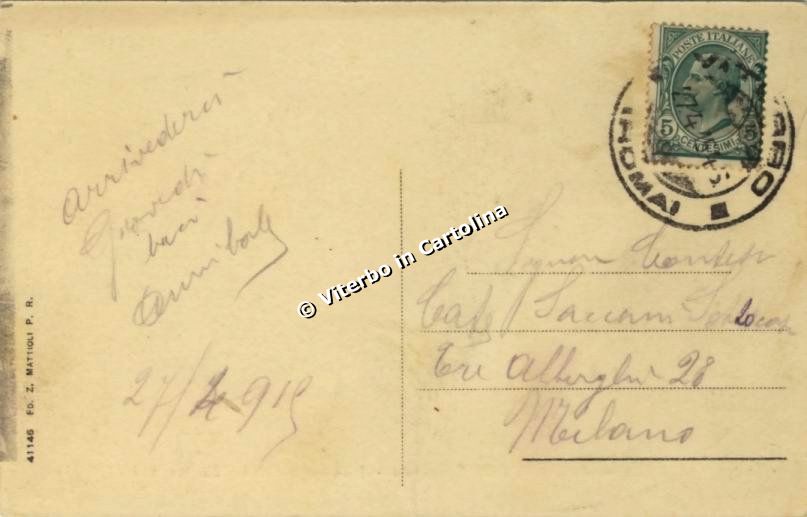 Arrivederci
Giovedì
baci
Annibale
27/4 915
41146 ED. Z. MATTIOLI P. R.
© Viterbo in Cartolina
POSTE ITALIANE
5 5
CENTESIMI
(ROMA)
Signor
Caffe
Tre Alberghi 28
Milano